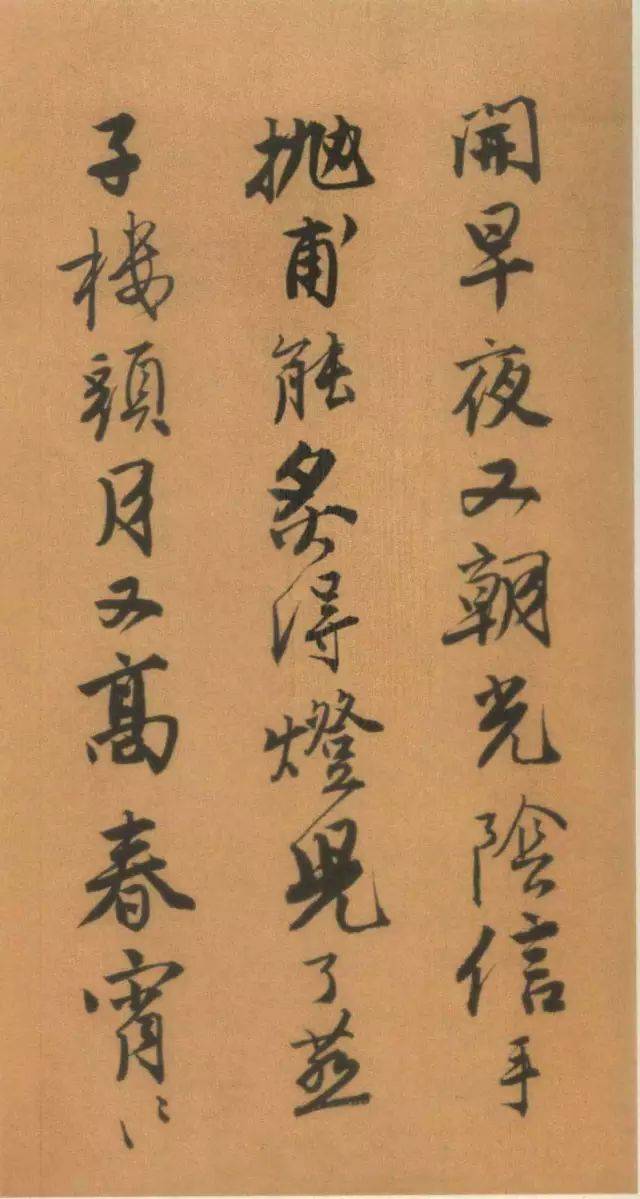 開早夜又朝光陰信手
拋甫能炙得燈兒了燕
子樓頭月又高春宵〻